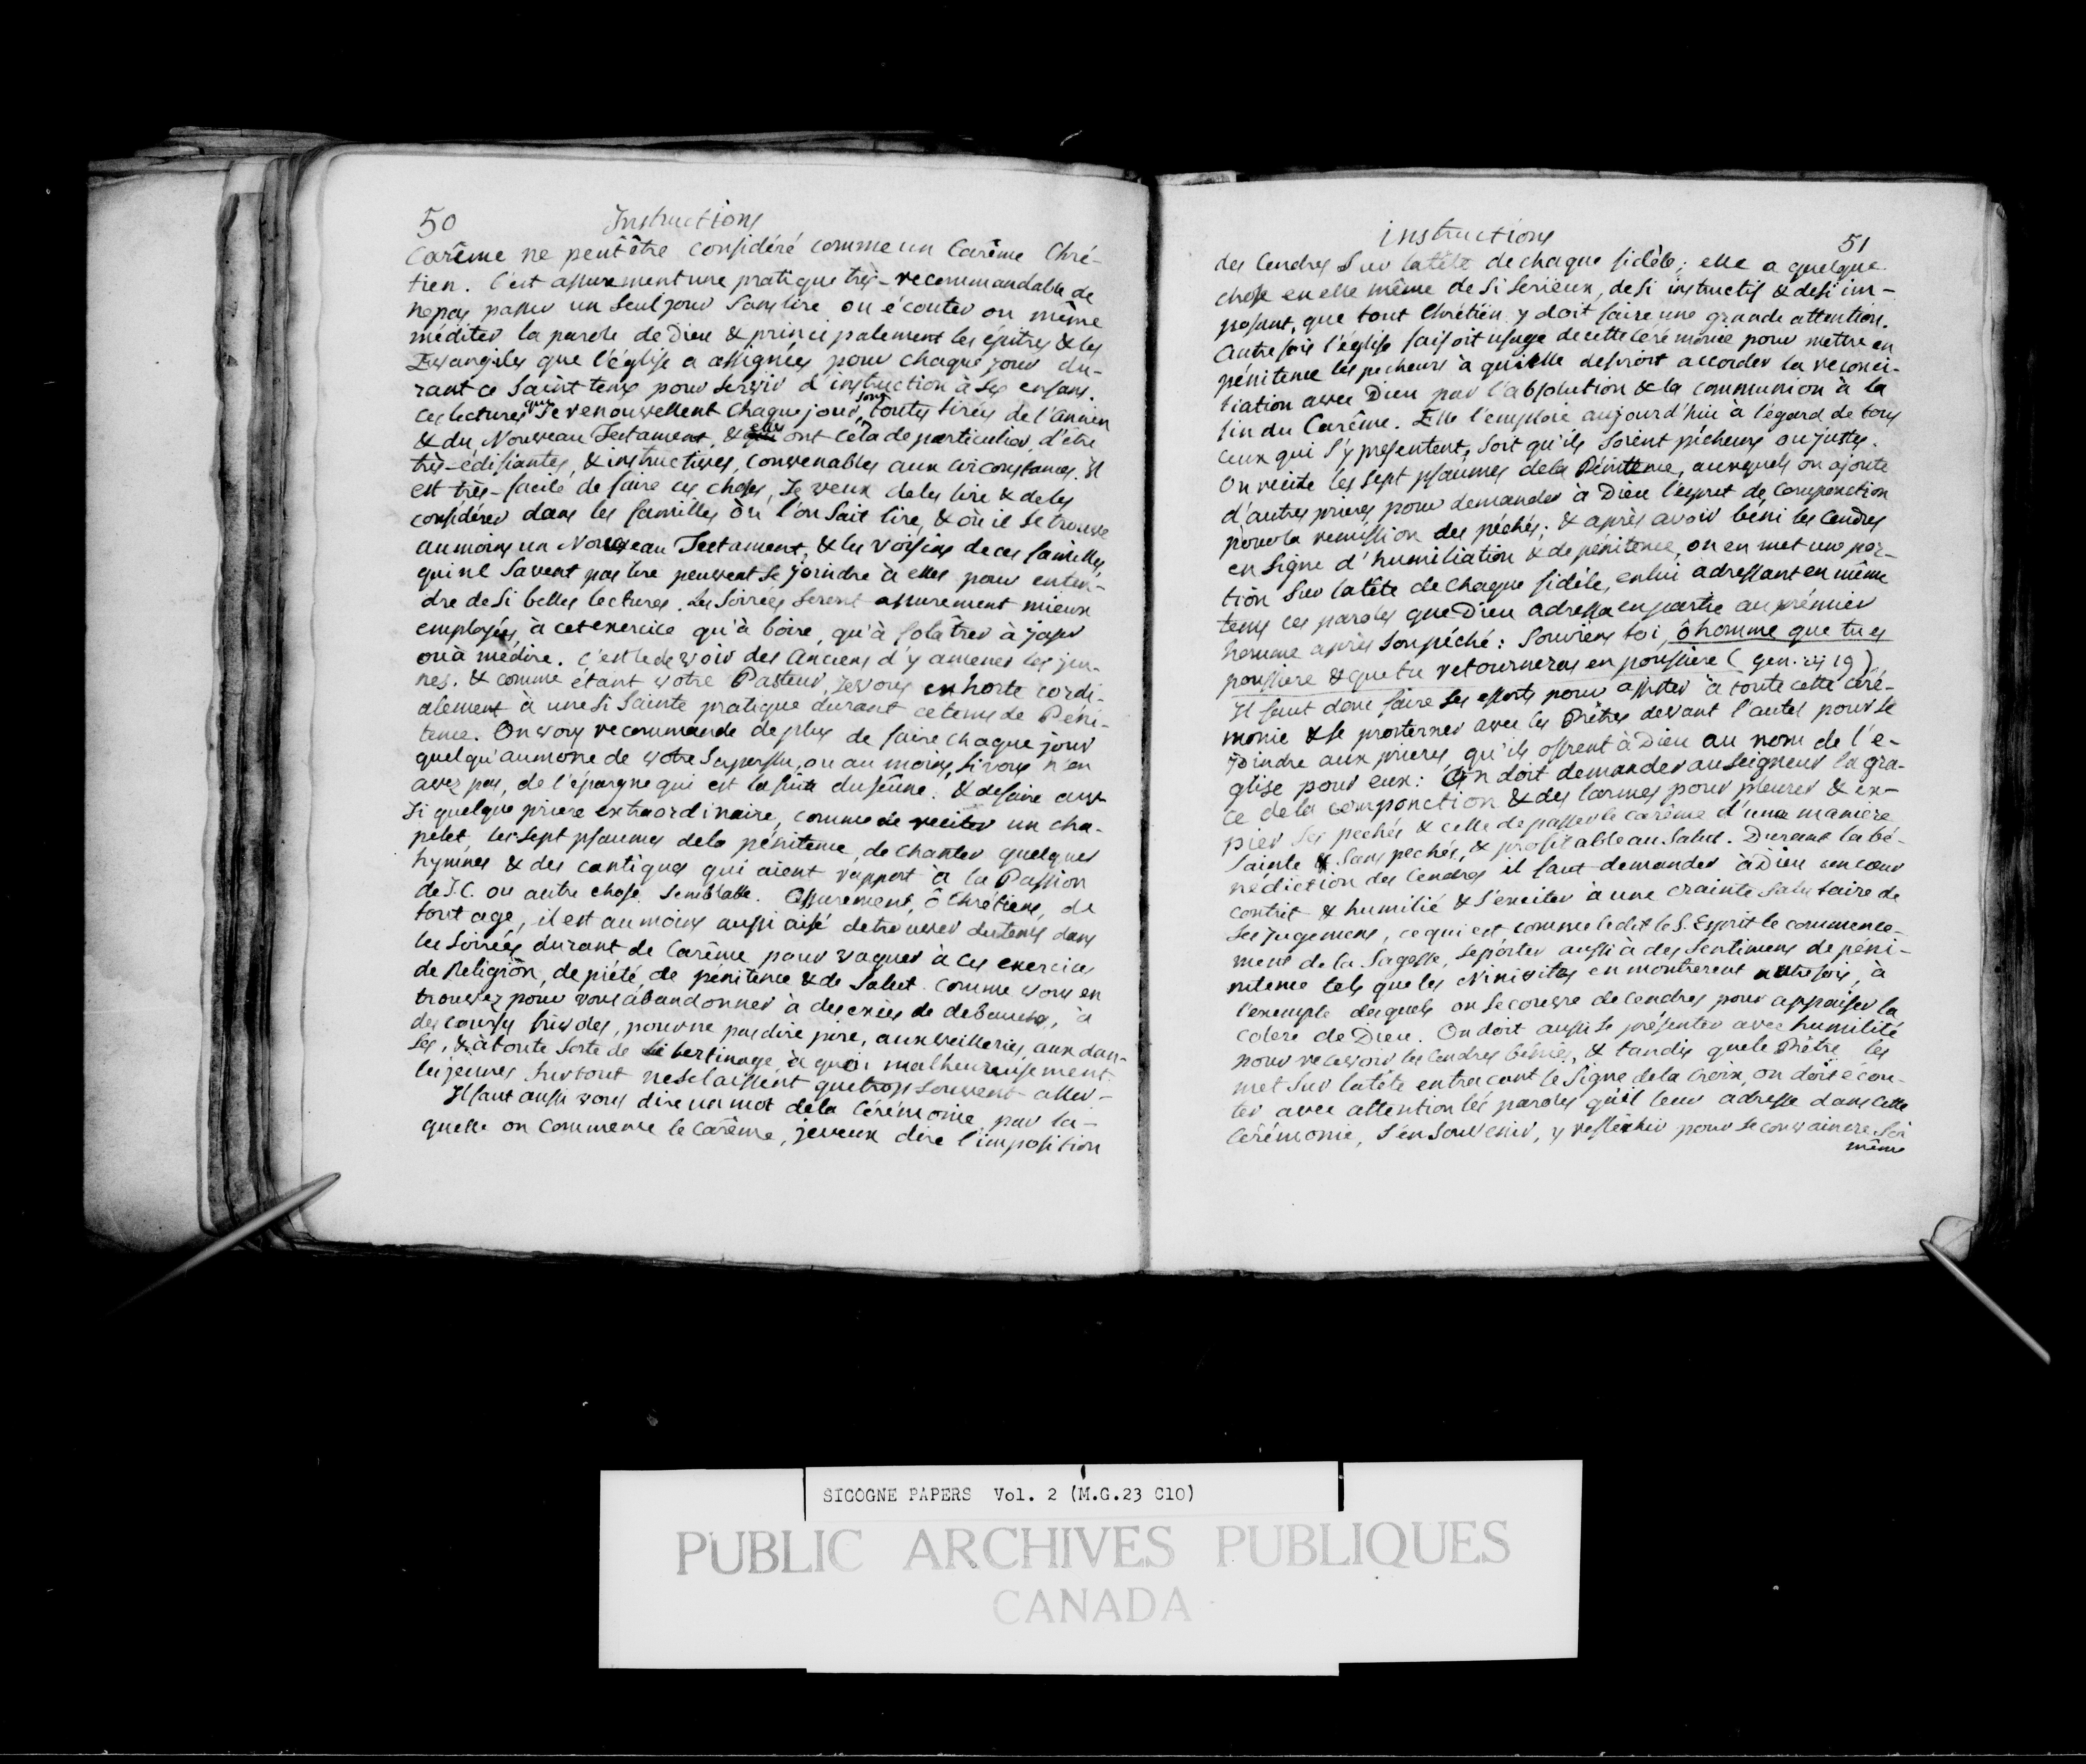 50 Instructions
Carême ne peut être considéré comme un Carême Chré-
tien. C'est assurement une pratique très-recommandable de
ne pas passer un seul jour sans lire ou écouter ou même
méditer la parole de Dieu & principalement les épitres & les
Evangiles que l'église a assignées pour chaque jour du-
rant ce saint tems pour servir d'instruction à ses enfans.
Ces lectures que se renouvellent chaque jour, sont toutes tirées de l'Ancien
& du Nouveau Testament, & elles ont cela de particulier d'être
très-édifiantes, & instructives, convenables aux circonstances. Il
est très-facile de faire ces choses, Je veux de les lire & de les
considérer dans les familles où l'on sait lire, & où il se trouve
au moins un Nouveau Testament, & les voisins de ces familles,
qui ne savent pas lire peuvent se joindre à elles pour enten-
dre de si belles lectures. Les soirées seront assurement mieux
employées, à cet exercice qu'à boire, qu'à folâtrer à japer
où à médire. C'est le devoir des Anciens d'y amener les jeu-
nes. & comme étant votre Pasteur, je vous exhorte cordi-
alement à une si sainte pratique durant ce tems de Péni-
tence. On vous recommande de plus de faire chaque jour
quelqu'aumone de votre superflu, ou au moins, si vous n'en
avez pas, de l'épargne qui est la suite du jeûne. & de faire aus-
si quelque priere extraordinaire, comme de reciter un cha-
pelet, les sept psaumes de la pénitence, de chanter quelques
hymnes & des cantiques qui aient rapport à la Passion
de J.C. ou autre chose semblable. Assurement, ô Chrétiens, de
tout age, il est au moins aussi aisé de trouver du tems dans
les soirées durant de Carême pour vaquer à ces exercices
de Religion, de piété, de pénitence & de salut comme vous en
trouvez pour vous abandonner à des excès de debauche, à
des courses frivoles, pour ne pas dire pire, aux veilleries, aux dan-
ses, & à toute sorte de libertinage, à quoi malheureusement
les jeunes surtout ne se laissent que trop souvent aller.-
Il faut aussi vous dire un mot de la Cérémonie par la-
quelle on commence le Carême, je veux dire l'imposition
instructions 51
des Cendres sur la tête de chaque fidèle; elle a quelque
chose en elle même de si serieux, de si instructif & de si im-
posant, que tout Chrétien y doit faire une grande attention.
Autrefois l'église faisoit usage de cette cérémonie pour mettre en
pénitence les pecheurs à qui elle desiroit accorder la reconci-
liation avec Dieu par l'absolution & la communion à la
fin du Carême. Elle l'emploie aujourd'hui à l'égard de tous
ceux qui s'y presentent, soit qu'ils soient pécheurs ou justes.
On recite les sept psaumes de la Pénitence, auxquels on ajoute
d'autres prieres pour demander à Dieu l'esprit de componction
pour la remission des péchés; & après avoir béni les Cendres
en signe d'humiliation & de pénitence, on en met une por-
tion sur la tête de chaque fidèle, en lui adressant en même
tems ces paroles que Dieu adressa en partie au prémier
homme après son péché: Souviens toi, ô homme que tu es
poussiere & que tu retourneras en poussiere (gen. iij 19).
Il faut donc faire ses efforts pour assister à toute cette céré-
monie & se prosterner avec les Prêtres devant l'autel pour se
joindre aux prieres, qu'ils offrent à Dieu au nom de l'e-
glise pour eux: On doit demander au Seigneur la gra-
ce de la componction & des larmes pour pleurer & ex-
pier ses pechés & celle de passer le carême d'une maniere
sainte & sans pechés, & profitable au salut. Durant la bé-
nédiction des Cendres il faut demander à Dieu un cœur
contrit & humilié & s'exciter à une crainte salutaire de
ses jugemens, ce qui est comme le dit le S. Esprit le commence-
ment de la Sagesse, se porter aussi à des sentimens de péni-
nitence tels que les Ninivites en montrerent autrefois, à
l'exemple desquels on se couvre de Cendres pour appaiser la
colere de Dieu. On doit aussi se présenter avec humilité
pour recevoir les Cendres bénies, & tandis que le Prêtre les
met sur la tête en tracant le signe de la Croix, on doit écou-
ter avec attention les paroles qu'il leur adresse dans cette
Cérémonie, s'en souvenir, y reflechir pour se convaincre soi
même
SICOGNE PAPERS Vol. 2 (M.G.23 C10)
PUBLIC ARCHIVES PUBLIQUES
CANADA